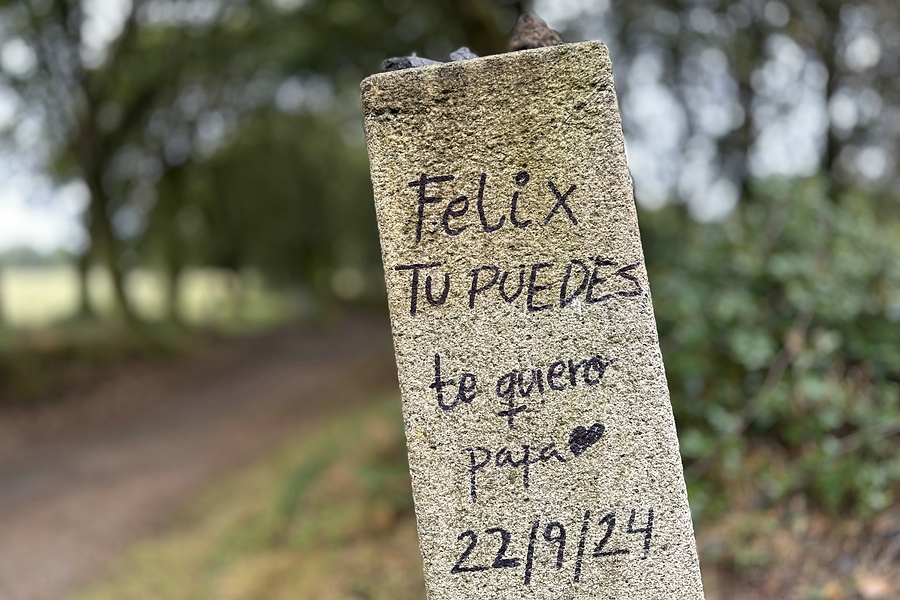 Felix
TU PUEDES
te quiero
+
papa ♥
22/9/24